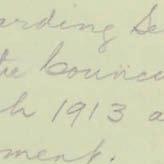 arding Se
the counci
h 1913 a
ment.